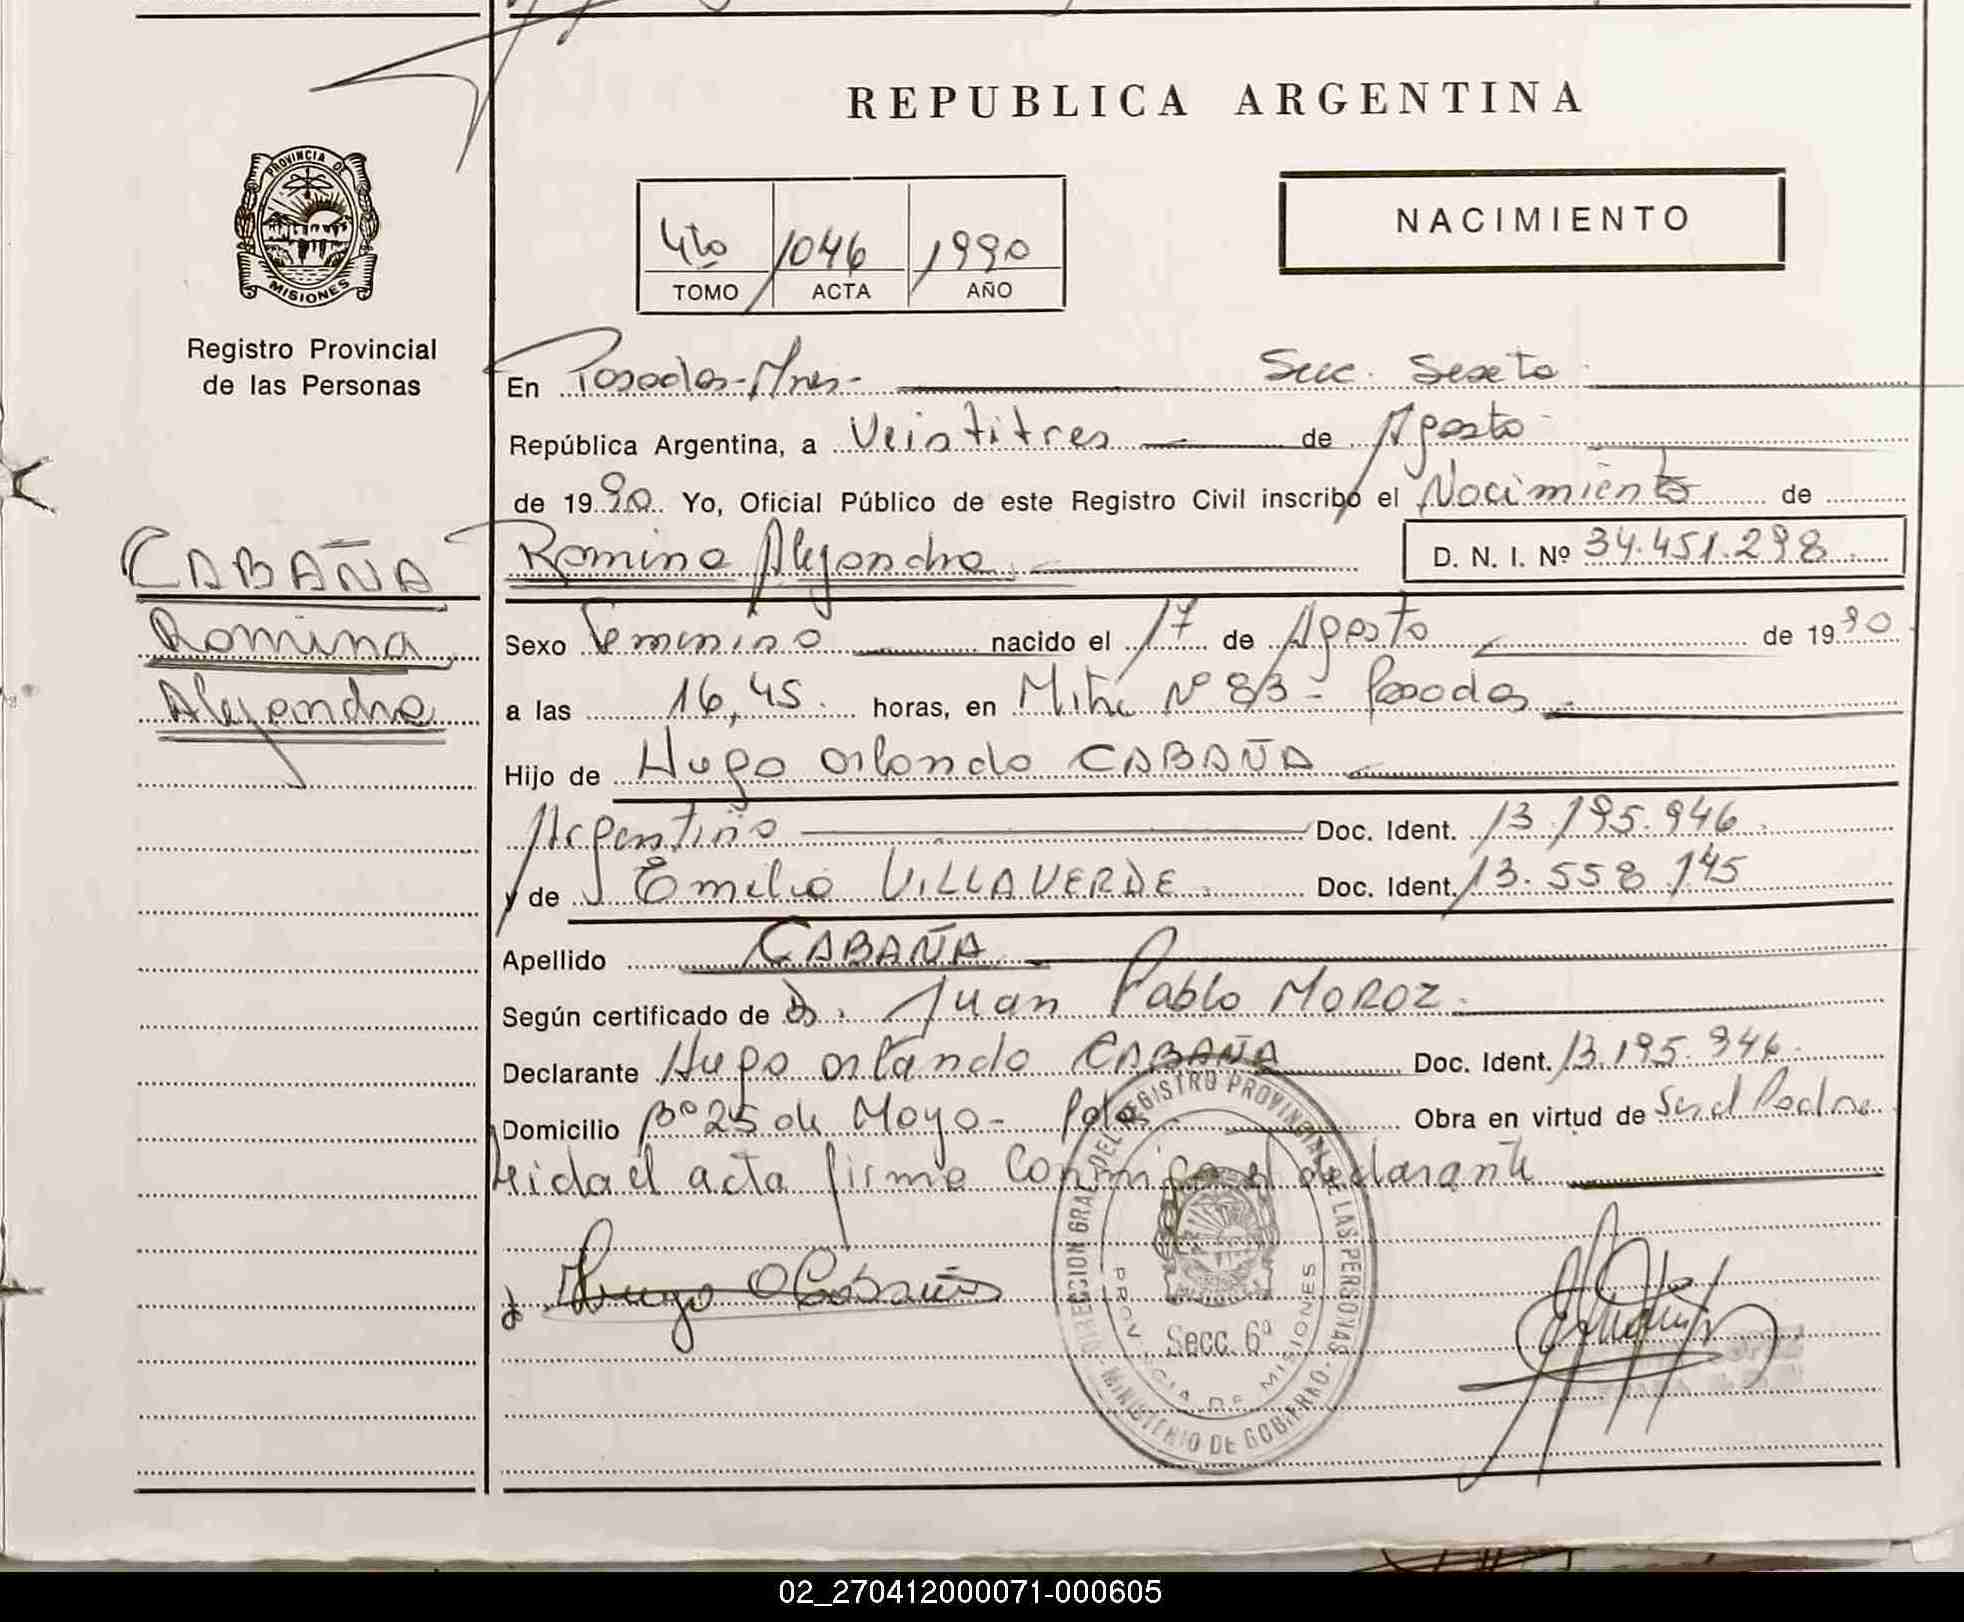 REPUBLICA ARGENTINA
PROVINCIA DE
MISIONES
Registro Provincial
de las Personas
4to 1046 1990
TOMO ACTA AÑO
NACIMIENTO
En Posadas-Mnes- Secc. Sexta
República Argentina, a Veintitres de Agosto
de 1990 Yo, Oficial Público de este Registro Civil inscribo el Nacimiento de
CABAÑA
Romina
Alejandra
Romina Alejandra D. N. I. Nº 34.451.298
Sexo Femenino nacido el 17 de Agosto de 1990
a las 16,45 horas, en Mitre Nº 83 - Posadas
Hijo de Hugo Orlando CABAÑA
Argentino Doc. Ident. 13.195.946
y de Emilia VILLAVERDE Doc. Ident. 13.558.145
Apellido CABAÑA
Según certificado de Dr. Juan Pablo MOROZ
Declarante Hugo Orlando CABAÑA Doc. Ident. 13.195.946
Domicilio Bº 25 de Mayo - Pdas Obra en virtud de Ser el Padre
Leida el acta firma conmigo el declarante
Hugo O Cabaña
DIRECCION GRAL. DEL REGISTRO PROVINCIAL DE LAS PERSONAS
MINISTERIO DE GOBIERNO
PROVINCIA DE MISIONES
Secc. 6ª
02_270412000071-000605